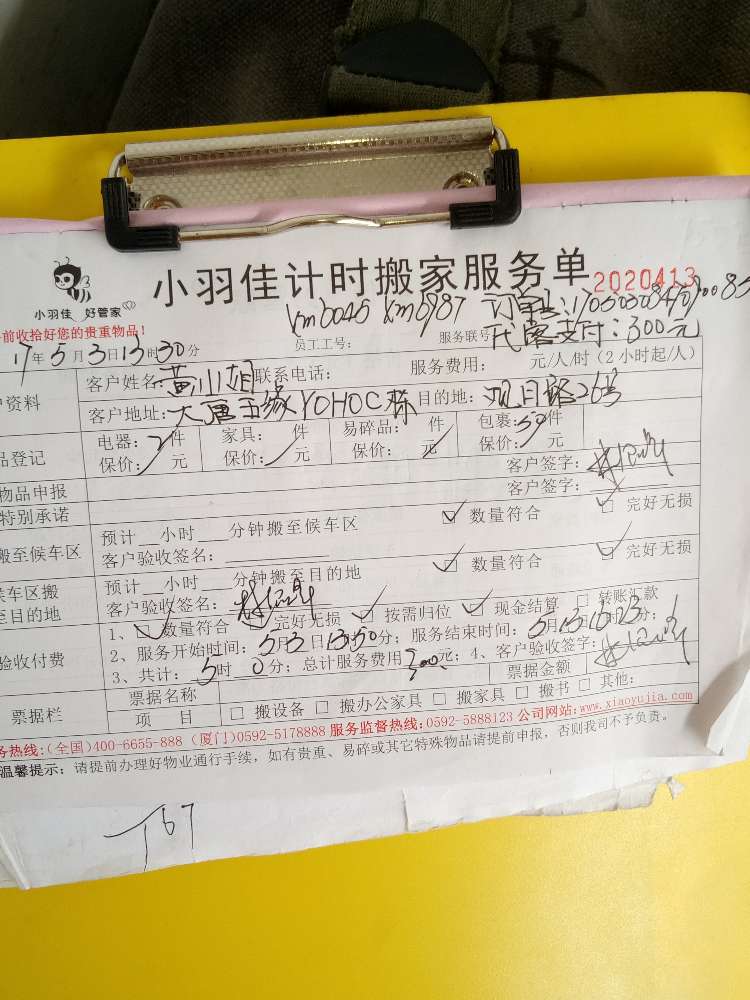 小羽佳 好管家
小羽佳计时搬家服务单 2020413
前收拾好您的贵重物品!
员工工号: xm6987 服务联号
订单号:
代客支付:300元
17年5月3日13时30分
户资料 客户姓名:黄小姐 联系电话: 服务费用: 元/人/时(2小时起/人)
客户地址:大唐五缘YOHOC栋 目的地:观日路26号
品登记 电器:2件 家具: 件 易碎品: 件 包裹:50件
保价: 元 保价: 元 保价: 元 保价: 元
物品申报 客户签字:
特别承诺 客户签字:
搬至候车区 预计__小时___分钟搬至候车区 ☑ 数量符合 ☑ 完好无损
客户验收签名:
候车区搬 预计__小时___分钟搬至目的地 ☑ 数量符合 ☑ 完好无损
至目的地 客户验收签名:
验收付费 1、☑ 数量符合 ☑ 完好无损 ☑ 按需归位 ☑ 现金结算 □ 转账汇款
2、服务开始时间:5月3日13时50分;服务结束时间:5月
3、共计:5时0分;总计服务费用300元;4、客户验收签字:
票据栏 票据名称 票据金额
项 目 □ 搬设备 □ 搬办公家具 □ 搬家具 □ 搬书 □ 其他:
务热线:(全国)400-6655-888 (厦门)0592-5178888 服务监督热线:0592-5888123 公司网站:www.xiaoyujia.com
温馨提示:请提前办理好物业通行手续,如有贵重、易碎或其它特殊物品请提前申报,否则我司不予负责。
T67